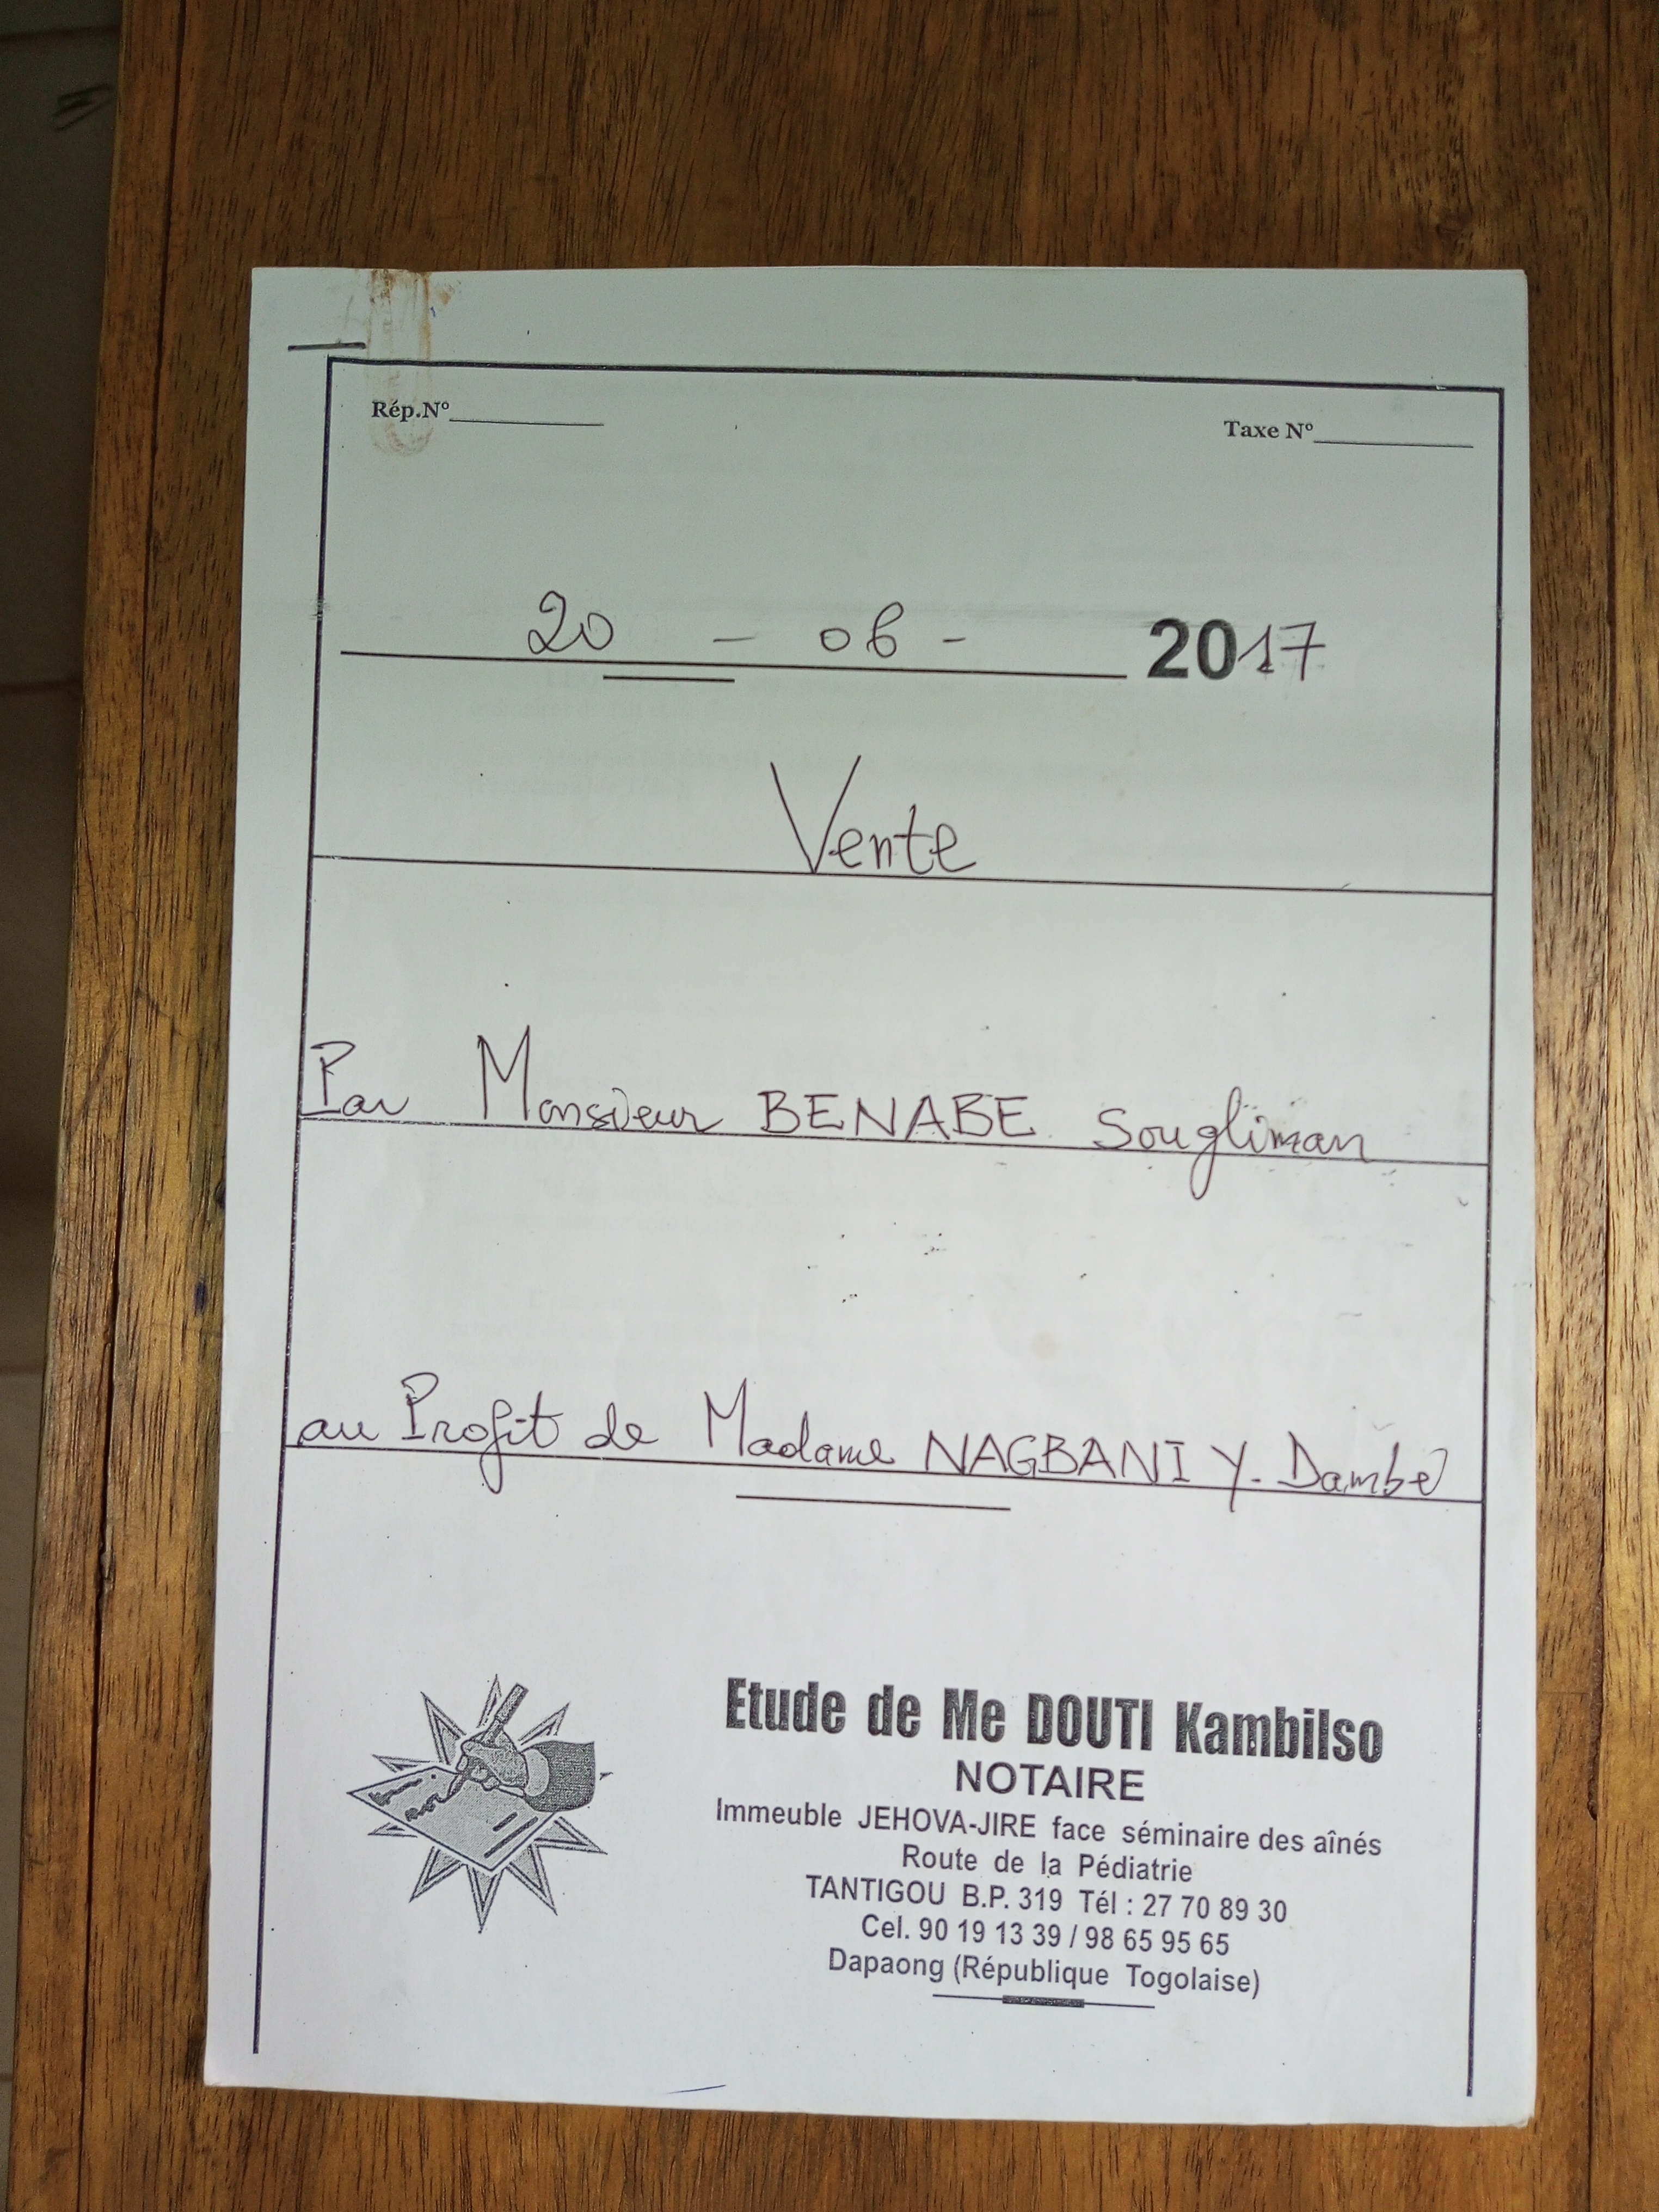 Rép.N°
Taxe N°
20 - 06 - 2017
Vente
Par Monsieur BENABE Sougliman
au Profit de Madame NAGBANI Y. Dambé
Etude de Me DOUTI Kambilso
NOTAIRE
Immeuble JEHOVA-JIRE face séminaire des aînés
Route de la Pédiatrie
TANTIGOU B.P. 319 Tél : 27 70 89 30
Cel. 90 19 13 39 / 98 65 95 65
Dapaong (République Togolaise)